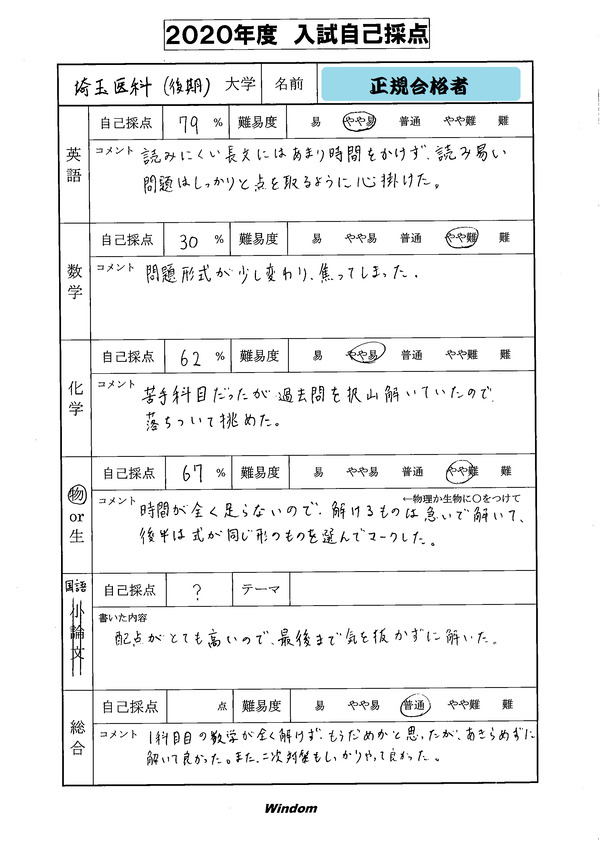 2020年度 入試自己採点
埼玉医科(後期) 大学 名前 正規合格者
英語 自己採点 79 % 難易度 易 やや易 普通 やや難 難
コメント 読みにくい長文にはあまり時間をかけず、読み易い
問題はしっかりと点を取るように心掛けた。
数学 自己採点 30 % 難易度 易 やや易 普通 やや難 難
コメント 問題形式が少し変わり、焦ってしまった。
化学 自己採点 62 % 難易度 易 やや易 普通 やや難 難
コメント 苦手科目だったが過去問を沢山解いていたので、
落ちついて挑めた。
物 or 生 自己採点 67 % 難易度 易 やや易 普通 やや難 難
←物理か生物に○をつけて
コメント 時間が全く足らないので、解けるものは急いで解いて、
後半は式が同じ形のものを選んでマークした。
国語 小論文 自己採点 ? テーマ
書いた内容
配点がとても高いので、最後まで気を抜かずに解いた。
総合 自己採点 点 難易度 易 やや易 普通 やや難 難
コメント 1科目目の数学が全く解けず、もうだめかと思ったが、あきらめずに
解いて良かった。また、二次対策もしっかりやって良かった。
Windom